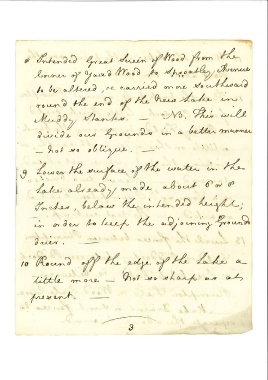 8 Intended Great Screen of Wood from the
corner of Yaud Wood to Sproatley Avenue
to be altered, & carried more Southward
round the end of the New Lake in
Muddy Stanks. — NB. This will
divide our Grounds in a better manner
— not so oblique. —
9 Lower the surface of the water in the
Lake already made about 6 or 8
Inches, below the intended height;
in order to keep the adjoining Grounds
drier. —
10 Round off the edge of the Lake a
little more — Not so sharp as at
present. —
3